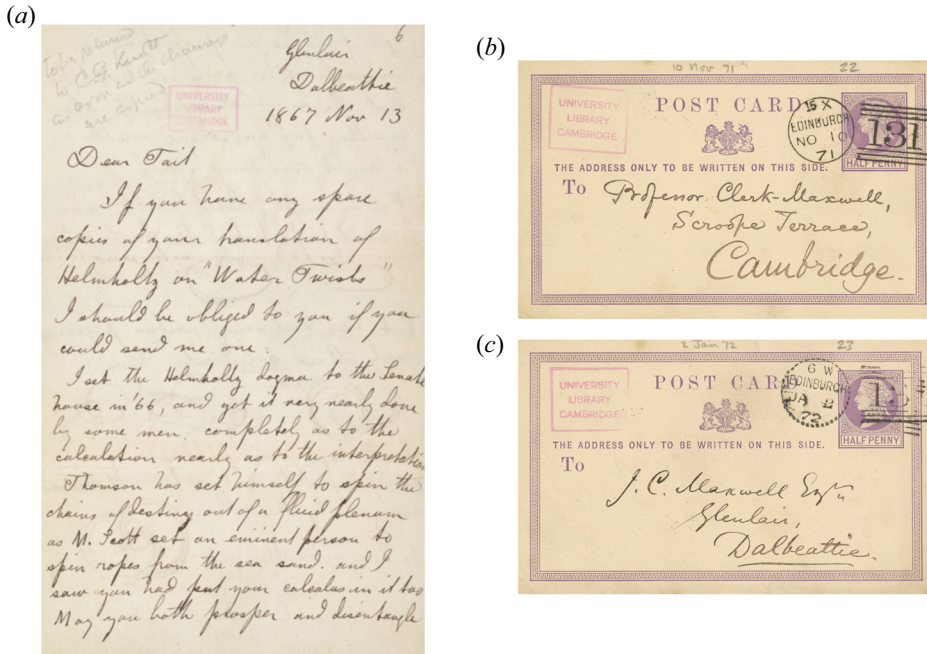 (a)
6
to be returned
to C.G. Knott
as soon as the drawings
are copied
UNIVERSITY
LIBRARY
CAMBRIDGE
Glenlair
Dalbeattie
1867 Nov 13
Dear Tait
If you have any spare
copies of your translation of
Helmholtz on "Water Twists"
I should be obliged to you if you
could send me one.
I set the Helmholtz dogma to the Senate
house in '66, and got it very nearly done
by some men. completely as to the
calculation nearly as to the interpretation
Thomson has set himself to spin the
chains of destiny out of a fluid plenum
as M. Scott set an eminent person to
spin ropes from the sea sand. and I
saw you had put your calculus in it too
May you both prosper and disentangle
(b)
10 Nov 71
22
UNIVERSITY
LIBRARY
CAMBRIDGE
POST CARD
EDINBURGH
NO 10
71
131
HALF PENNY
THE ADDRESS ONLY TO BE WRITTEN ON THIS SIDE.
To Professor Clerk-Maxwell,
Scroope Terrace,
Cambridge.
(c)
2 Jan 72
23
UNIVERSITY
LIBRARY
CAMBRIDGE
POST CARD
6 W
EDINBURGH
JA 2
72
HALF PENNY
THE ADDRESS ONLY TO BE WRITTEN ON THIS SIDE.
To
J. C. Maxwell Esqre
Glenlair,
Dalbeattie.